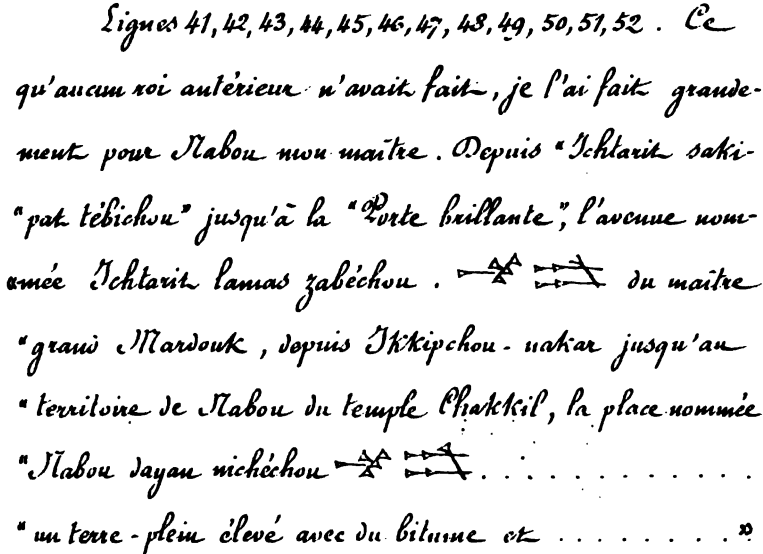 Lignes 41, 42, 43, 44, 45, 46, 47, 48, 49, 50, 51, 52. Ce
qu'aucun roi antérieur n'avait fait, je l'ai fait grande-
ment pour Nabou mon maître. Depuis "Ichtarit saki-
"pat tébichou" jusqu'à la "Porte brillante", l'avenue nom-
"mée Ichtarit lamas zabéchou. du maître
"grand Mardouk, depuis Ikkipchou-nakar jusqu'au
"territoire de Nabou du temple Chakkil, la place nommée
"Nabou dayan nichéchou . . . . . . . . . . . .
"un terre-plein élevé avec du bitume et . . . . . . . . "